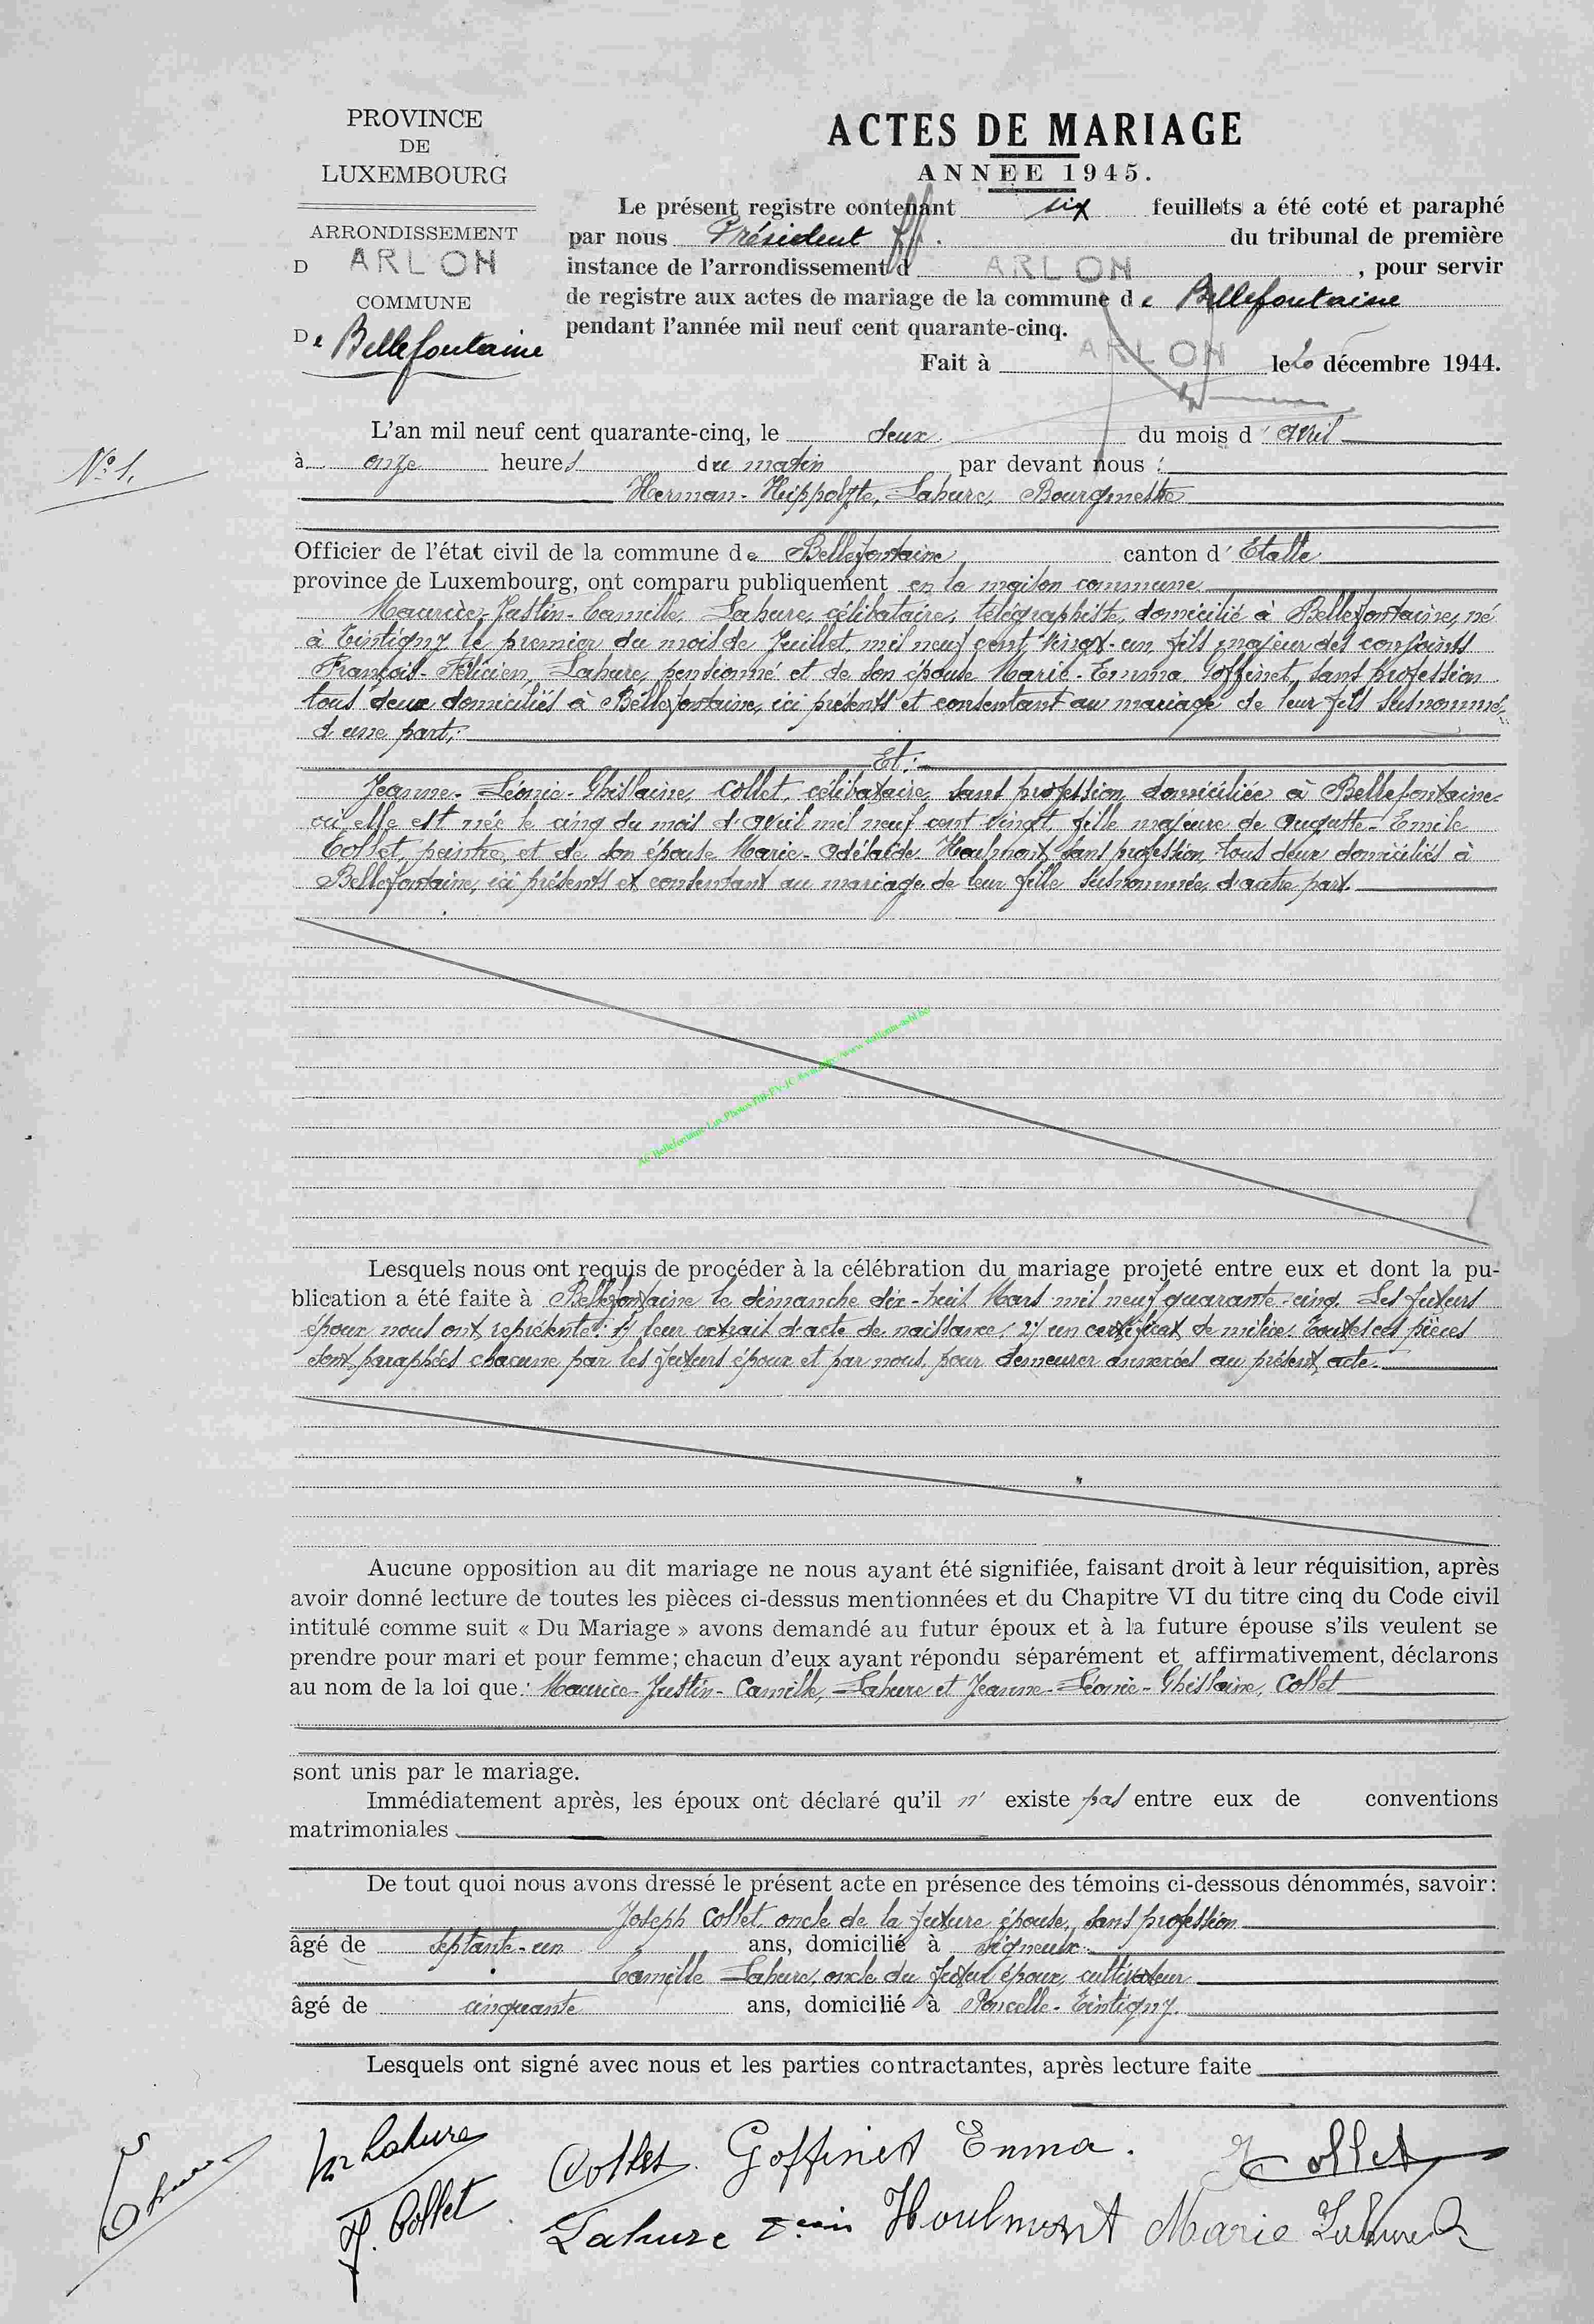 PROVINCE
DE
LUXEMBOURG
ARRONDISSEMENT
D ARLON
COMMUNE
De Bellefontaine
ACTES DE MARIAGE
ANNÉE 1945.
Le présent registre contenant six feuillets a été coté et paraphé
par nous Président ff. du tribunal de première
instance de l'arrondissement d ARLON, pour servir
de registre aux actes de mariage de la commune de Bellefontaine
pendant l'année mil neuf cent quarante-cinq.
Fait à ARLON le 20 décembre 1944.
N° 1.
L'an mil neuf cent quarante-cinq, le deux du mois d'Avril
à onze heures du matin par devant nous :
Herman-Hippolyte, Lahure, Bourgmestre
Officier de l'état civil de la commune de Bellefontaine canton d'Etalle
province de Luxembourg, ont comparu publiquement en la maison commune
Maurice-Justin-Camille, Lahure, célibataire, télégraphiste, domicilié à Bellefontaine, né
à Tintigny le premier du mois de Juillet mil neuf cent vingt-un fils majeur des conjoints
François-Félicien Lahure, pensionné et de son épouse Marie-Emma Goffinet, sans profession
tous deux domiciliés à Bellefontaine, ici présents et consentant au mariage de leur fils susnommé,
d'une part;
Et:
Jeanne-Léonie-Ghislaine, Collet, célibataire, sans profession, domiciliée à Bellefontaine
où elle est née le cinq du mois d'avril mil neuf cent vingt, fille majeure de Auguste-Emile
Collet, peintre, et de son épouse Marie-Adélaïde Houlmont, sans profession, tous deux domiciliés à
Bellefontaine, ici présents et consentant au mariage de leur fille susnommée, d'autre part.
AC Bellefontaine Lux Photos www.wallonia-asbl.be
Lesquels nous ont requis de procéder à la célébration du mariage projeté entre eux et dont la pu-
blication a été faite à Bellefontaine le dimanche dix-huit Mars mil neuf quarante-cinq. Les futurs
époux nous ont représenté: 1) leur extrait d'acte de naissance; 2) un certificat de milice. Toutes ces pièces
sont paraphées chacune par les futurs époux et par nous, pour demeurer annexées au présent acte.
Aucune opposition au dit mariage ne nous ayant été signifiée, faisant droit à leur réquisition, après
avoir donné lecture de toutes les pièces ci-dessus mentionnées et du Chapitre VI du titre cinq du Code civil
intitulé comme suit « Du Mariage » avons demandé au futur époux et à la future épouse s'ils veulent se
prendre pour mari et pour femme; chacun d'eux ayant répondu séparément et affirmativement, déclarons
au nom de la loi que: Maurice-Justin-Camille, Lahure et Jeanne-Léonie-Ghislaine, Collet
sont unis par le mariage.
Immédiatement après, les époux ont déclaré qu'il n' existe pas entre eux de conventions
matrimoniales
De tout quoi nous avons dressé le présent acte en présence des témoins ci-dessous dénommés, savoir:
Joseph Collet, oncle de la future épouse, sans profession
âgé de septante-un ans, domicilié à Signeulx
Camille Lahure, oncle du futur époux, cultivateur
âgé de cinquante ans, domicilié à Poncelle-Tintigny.
Lesquels ont signé avec nous et les parties contractantes, après lecture faite
Lahure Collet Goffinet Emma. J Collet
J. Collet Lahure Houlmont Marie Lahure